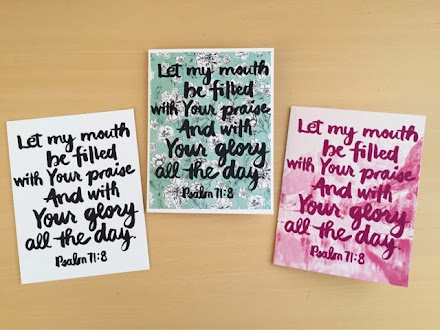 Let my mouth
be filled
with Your praise
And with
Your glory
all the day.
Psalm 71:8
Let my mouth
be filled
with Your praise
And with
Your glory
all the day.
Psalm 71:8
Let my mouth
be filled
with Your praise
And with
Your glory
all the day.
Psalm 71:8